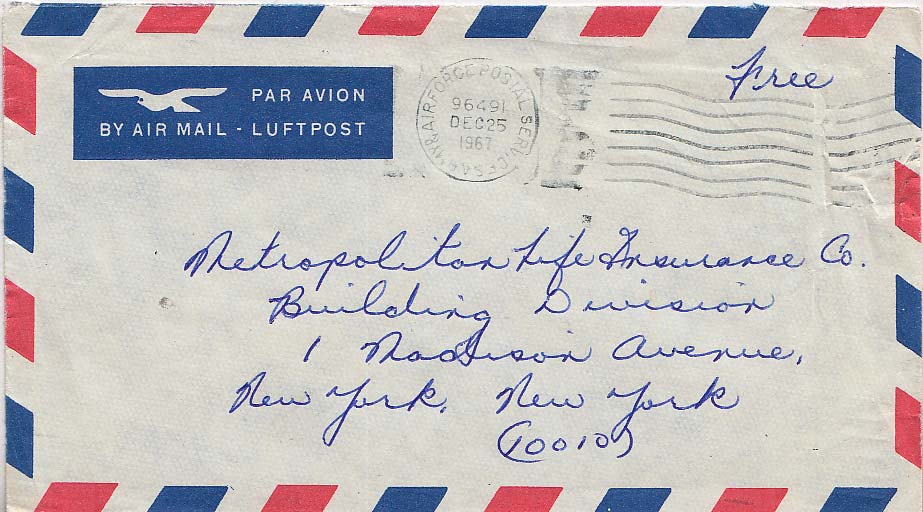 PAR AVION
BY AIR MAIL - LUFTPOST
AIR FORCE POSTAL SERVICE
96491
DEC 25
1967
Free
Metropolitan Life Insurance Co.
Building Division
1 Madison Avenue,
New York, New York
(10010)